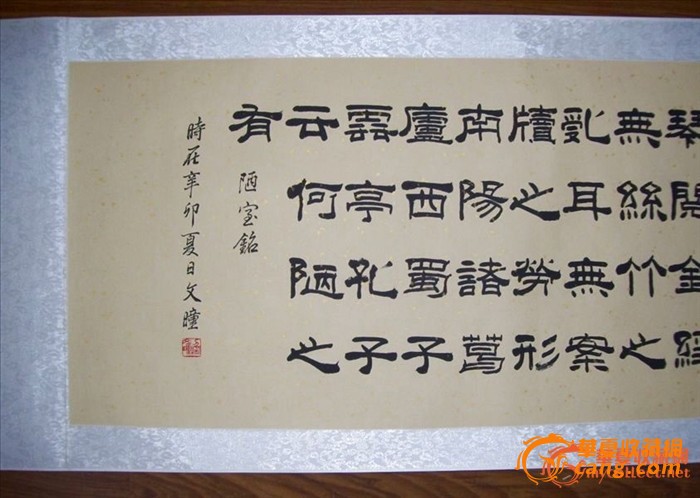 琴閱金經
無絲竹之
亂耳無案
牘之勞形
南陽諸葛
廬西蜀子
雲亭孔子
云何陋之
有
陋室銘
時在辛卯夏日文曈
華夏收藏網
cang.com
mycollect.net